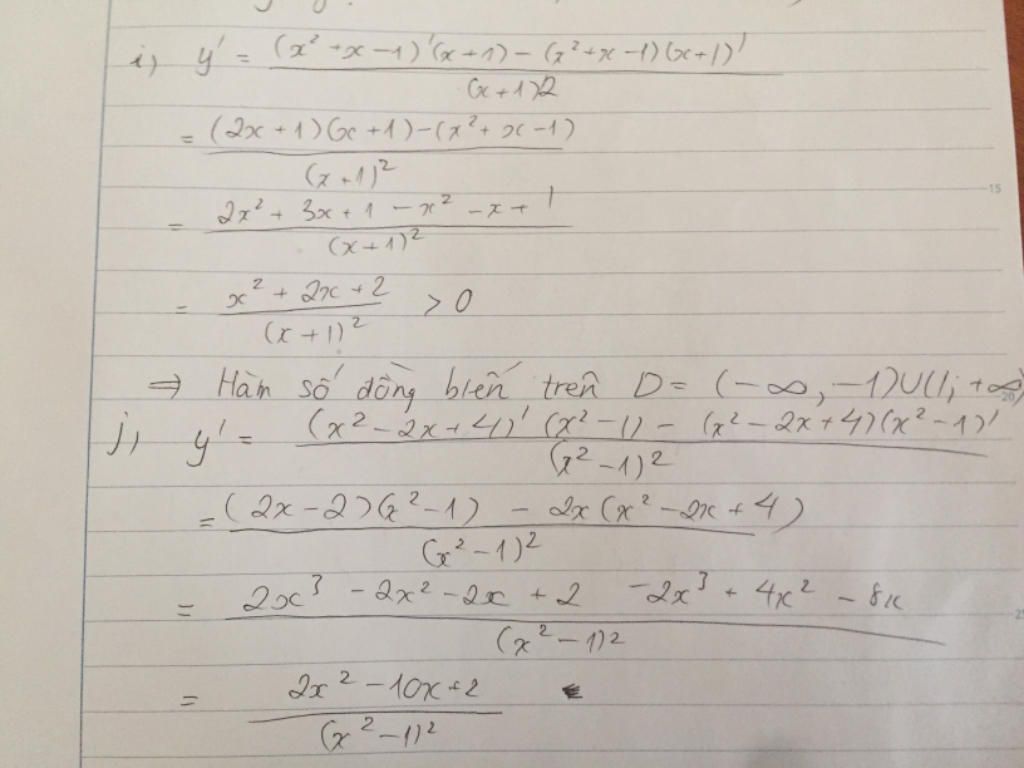 i) y' = ((x² + x - 1)'(x + 1) - (x² + x - 1)(x + 1)') / (x + 1)2
= ((2x + 1)(x + 1) - (x² + x - 1)) / (x + 1)²
15
= (2x² + 3x + 1 - x² - x + 1) / (x + 1)²
= (x² + 2x + 2) / (x + 1)² > 0
⇒ Hàm số đồng biến trên D = (-∞, -1)∪(1; +∞)
20
j) y' = ((x² - 2x + 4)'(x² - 1) - (x² - 2x + 4)(x² - 1)') / (x² - 1)²
= ((2x - 2)(x² - 1) - 2x(x² - 2x + 4)) / (x² - 1)²
= (2x³ - 2x² - 2x + 2 - 2x³ + 4x² - 8x) / (x² - 1)²
= (2x² - 10x + 2) / (x² - 1)²